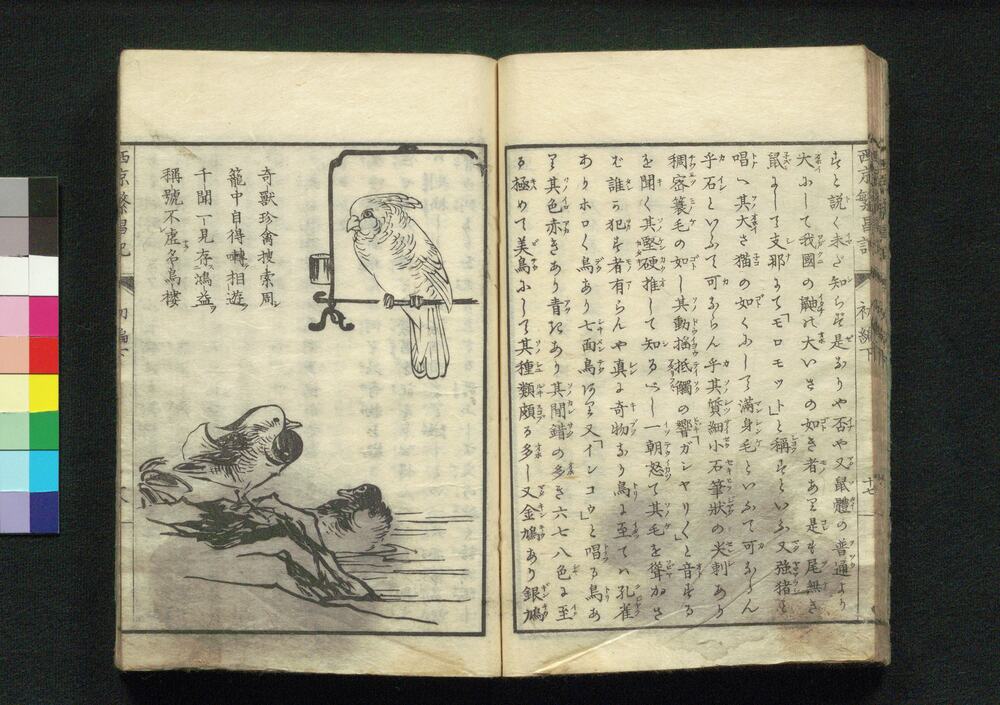 西京繁昌記 初編下 十七
すと説く未だ知らず是なりや否や又鼠體の普通より
大にして我國の鼬の大いさの如き者あり是も尾無き
鼠にして支那にて「モロモット」と稱すといふ又強猪を
唱へ其大さ猫の如くにして滿身毛といふて可ならん
乎石といふて可ならん乎其質細小石筆狀の尖刺あり
稠密簑毛の如し其動搖抵觸の響「ガンヤリ〳〵」と音する
を聞く其堅硬推して知るべし一朝怒て其毛を聳かさ
む誰か犯す者有らんや真に奇物なり鳥に至ては孔雀
ありホロ〳〵鳥あり七面鳥あり又「インコウ」と唱る鳥あ
り其色赤きあり青きあり其間錯の多き六七八色に至
る極めて美鳥にして其種類頗る多し又金鳩あり銀鳩
奇獸珍禽搜索周
籠中自得囀相遊
千聞一見存鴻益
稱號不虛名鳥樓
西京繁昌記 初編下